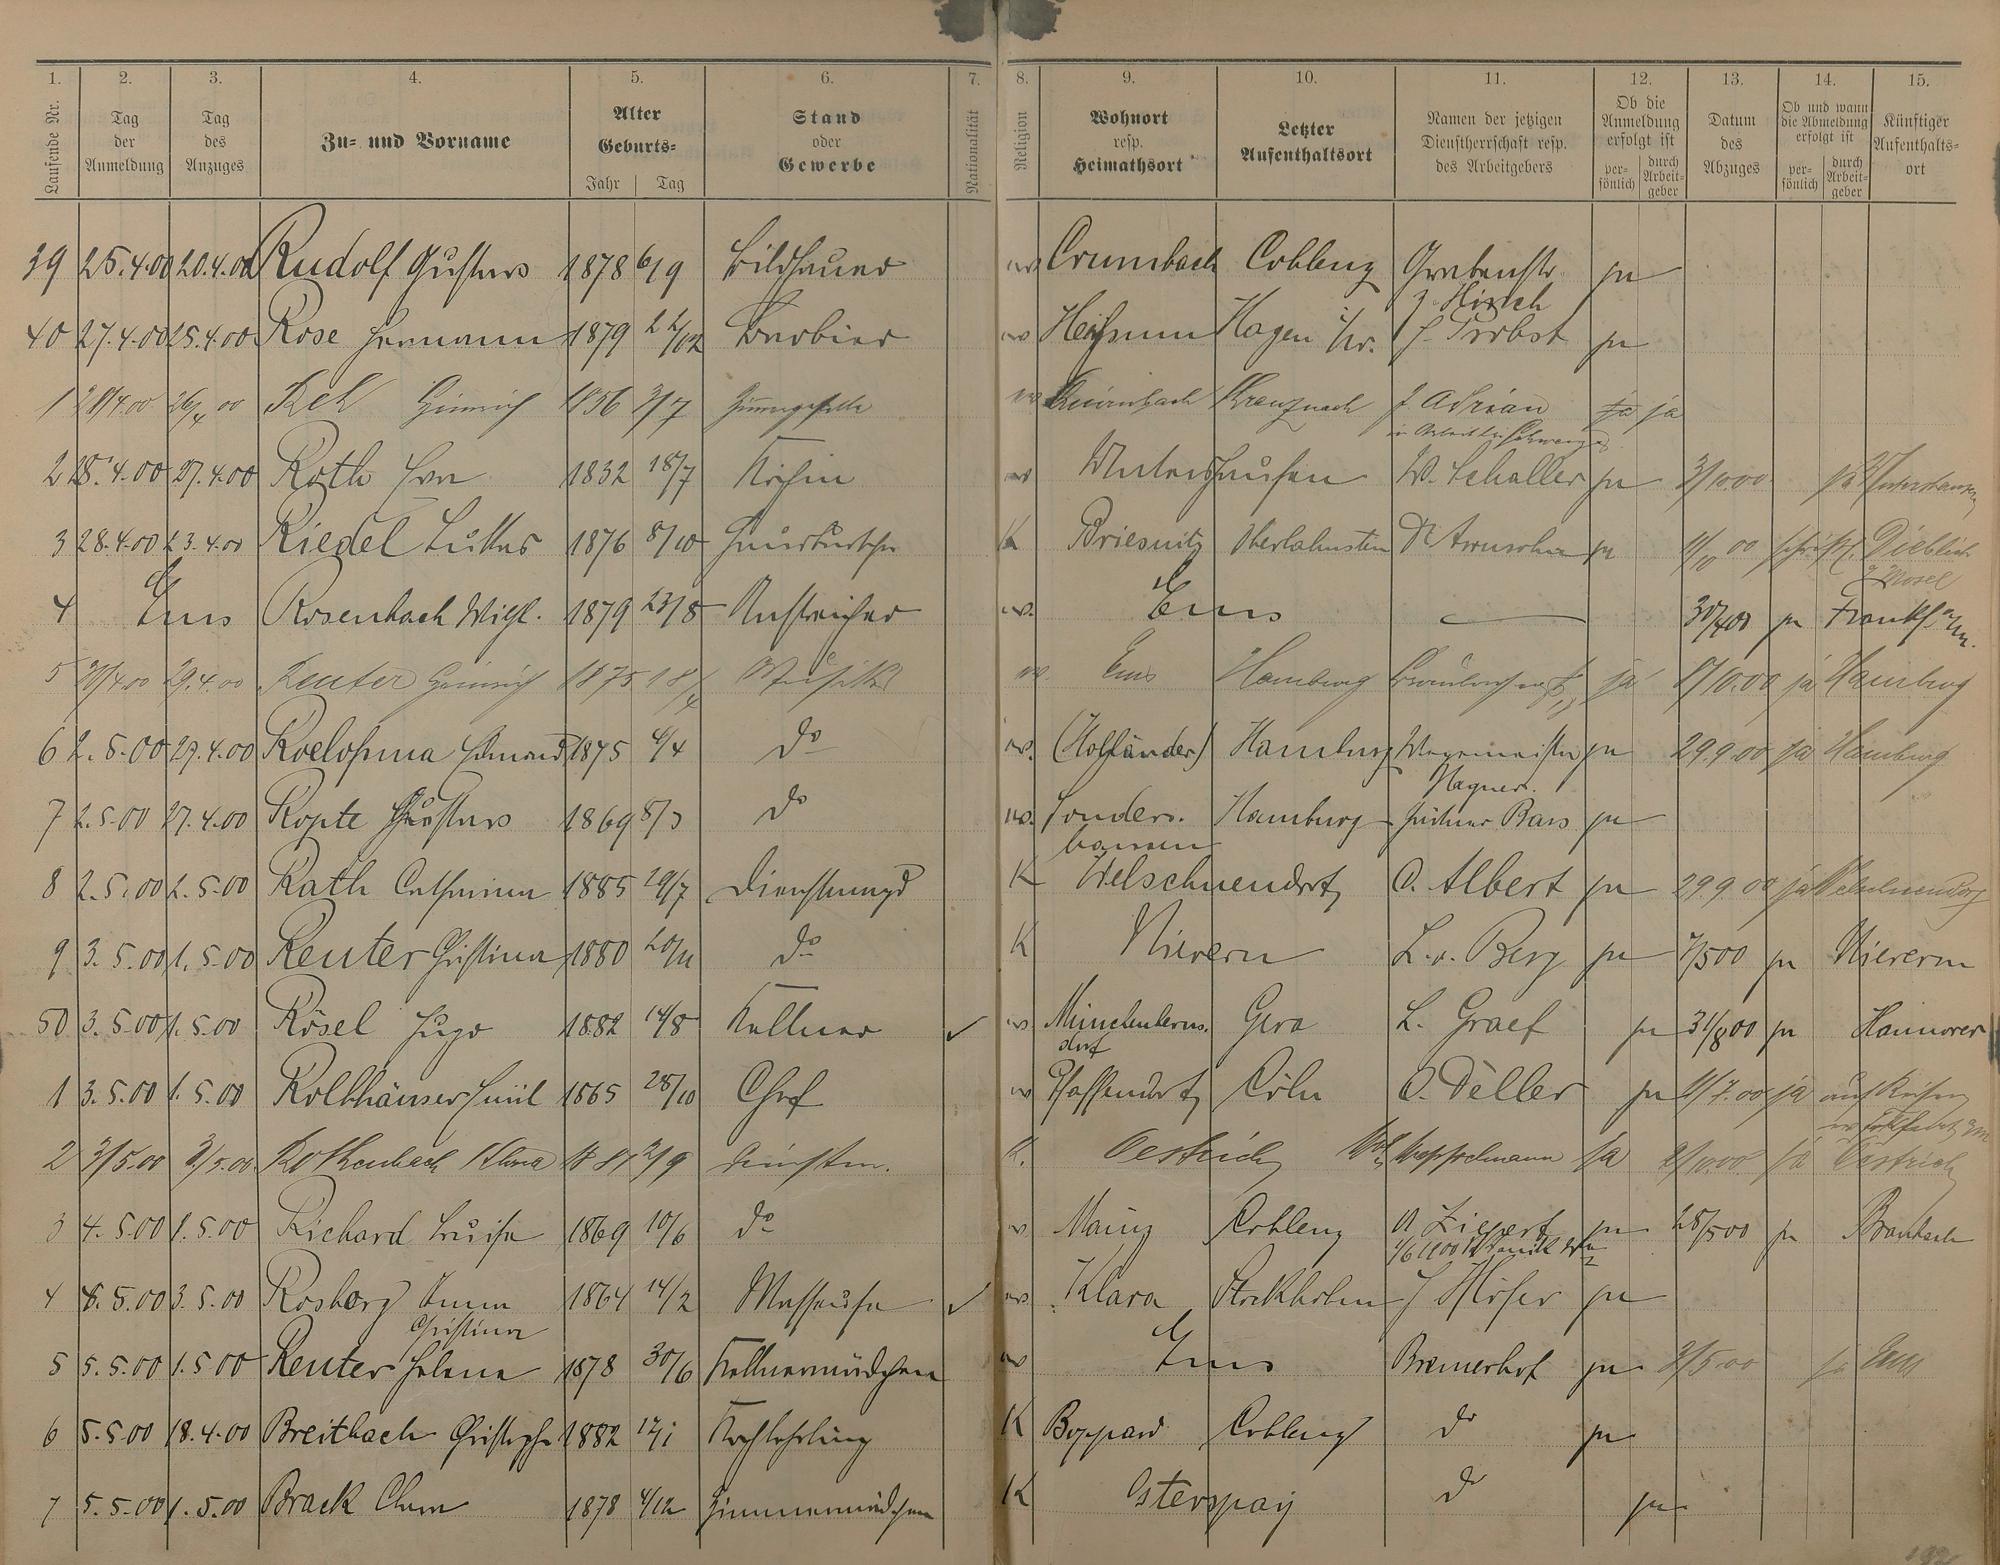 1. 2. 3. 4. 5. 6. 7. 8. 9. 10. 11. 12. 13. 14. 15.
Laufende Nr. Tag der Anmeldung Tag des Anzuges Zu- und Vorname Alter Geburts- Jahr Tag Stand oder Gewerbe Nationalität Religion Wohnort resp. Heimathsort Letzter Aufenthaltsort Namen der jetzigen Dienstherrschaft resp. des Arbeitgebers Ob die Anmeldung erfolgt ist per- sönlich durch Arbeit- geber Datum des Abzuges Ob und wann die Abmeldung erfolgt ist per- sönlich durch Arbeit- geber Künftiger Aufenthalts- ort
39 25.4.00 20.4.00 Rudolf Gustav 1878 6/9 Bildhauer Crumbach Coblenz Grabenstr. ja
z. Hirsch
40 27.4.00 25.4.00 Rose Hermann 1879 22/12 Barbier Hagen Probst ja
1 28/4.00 26/4 00 Heinrich 1856 3/7 Kreuznach J Adrian ja ja
2 28.4.00 27.4.00 Roth Eva 1832 18/7 Köchin Untershausen W. Schaller ja 3/10 00 ja Untershausen
3 28.4.00 23.4.00 Riedel Lukas 1876 8/10 Hausbursche K Briesnitz Oberlahnstein ja Dieblich
a/ Mosel
4 Ems Rosenbach Wilh. 1879 23/8 Anstreicher w. Ems — 30/4 00 ja Frankf. a/m.
5 29.4.00 Reuter Heinrich 1875 18/4 Musiker Ems Hamburg ja 1/10.00 ja Hamburg
6 2.5.00 27.4.00 Roelofsma 1875 4/4 do w. (Holländer) Hamburg Wagemeister ja 29.9.00 ja Hamburg
Wagner.
7 2.5.00 27.4.00 Kopte Gustav 1869 8/3 do Sonders- Hamburg Bars ja
hausen
8 2.5.00 2.5.00 Rath Catharina 1885 29/7 Dienstmagd K Welschneudorf O. Albert ja 29.9.00 ja Welschneudorf
9 3.5.00 1.5.00 Reuter Christina 1880 20/11 do K Nievern L. v. Berg ja 7/5 00 ja Nievern
50 3.5.00 1.5.00 Rösel Hugo 1882 14/8 Kellner ✓ Münchenberns- Gera L. Graef ja 31/8 00 ja Hannover
dorf
1 3.5.00 1.5.00 Kolkhäuser Emil 1865 28/10 Chef Pfaffendorf Cöln O. Déller ja 1/7.00 ja auf Reisen
2 3/5.00 3/5.00 Rothenbach Klara 1881 2/9 K. Oestrich ja 2/10.00 ja Oestrich
3 4.5.00 1.5.00 Richard Luise 1869 10/6 do Mainz Coblenz ja 28/5 00 ja Braubach
4 8.5.00 3.5.00 Rosberg Anna 1864 14/2 Masseuse ✓ Klara Stockholm J Höfer ja
Christina
5 5.5.00 1.5 00 Reuter Helena 1878 30/6 Kellnermädchen Ems Bremerhof ja 3/5 00 ja Ems
6 5.5 00 18.4.00 Breitbach Christoph 1882 17/1 Kochlehrling K Boppard Coblenz do ja
7 5.5.00 1.5.00 Brack Clara 1878 4/12 Zimmermädchen K Osterspay do ja